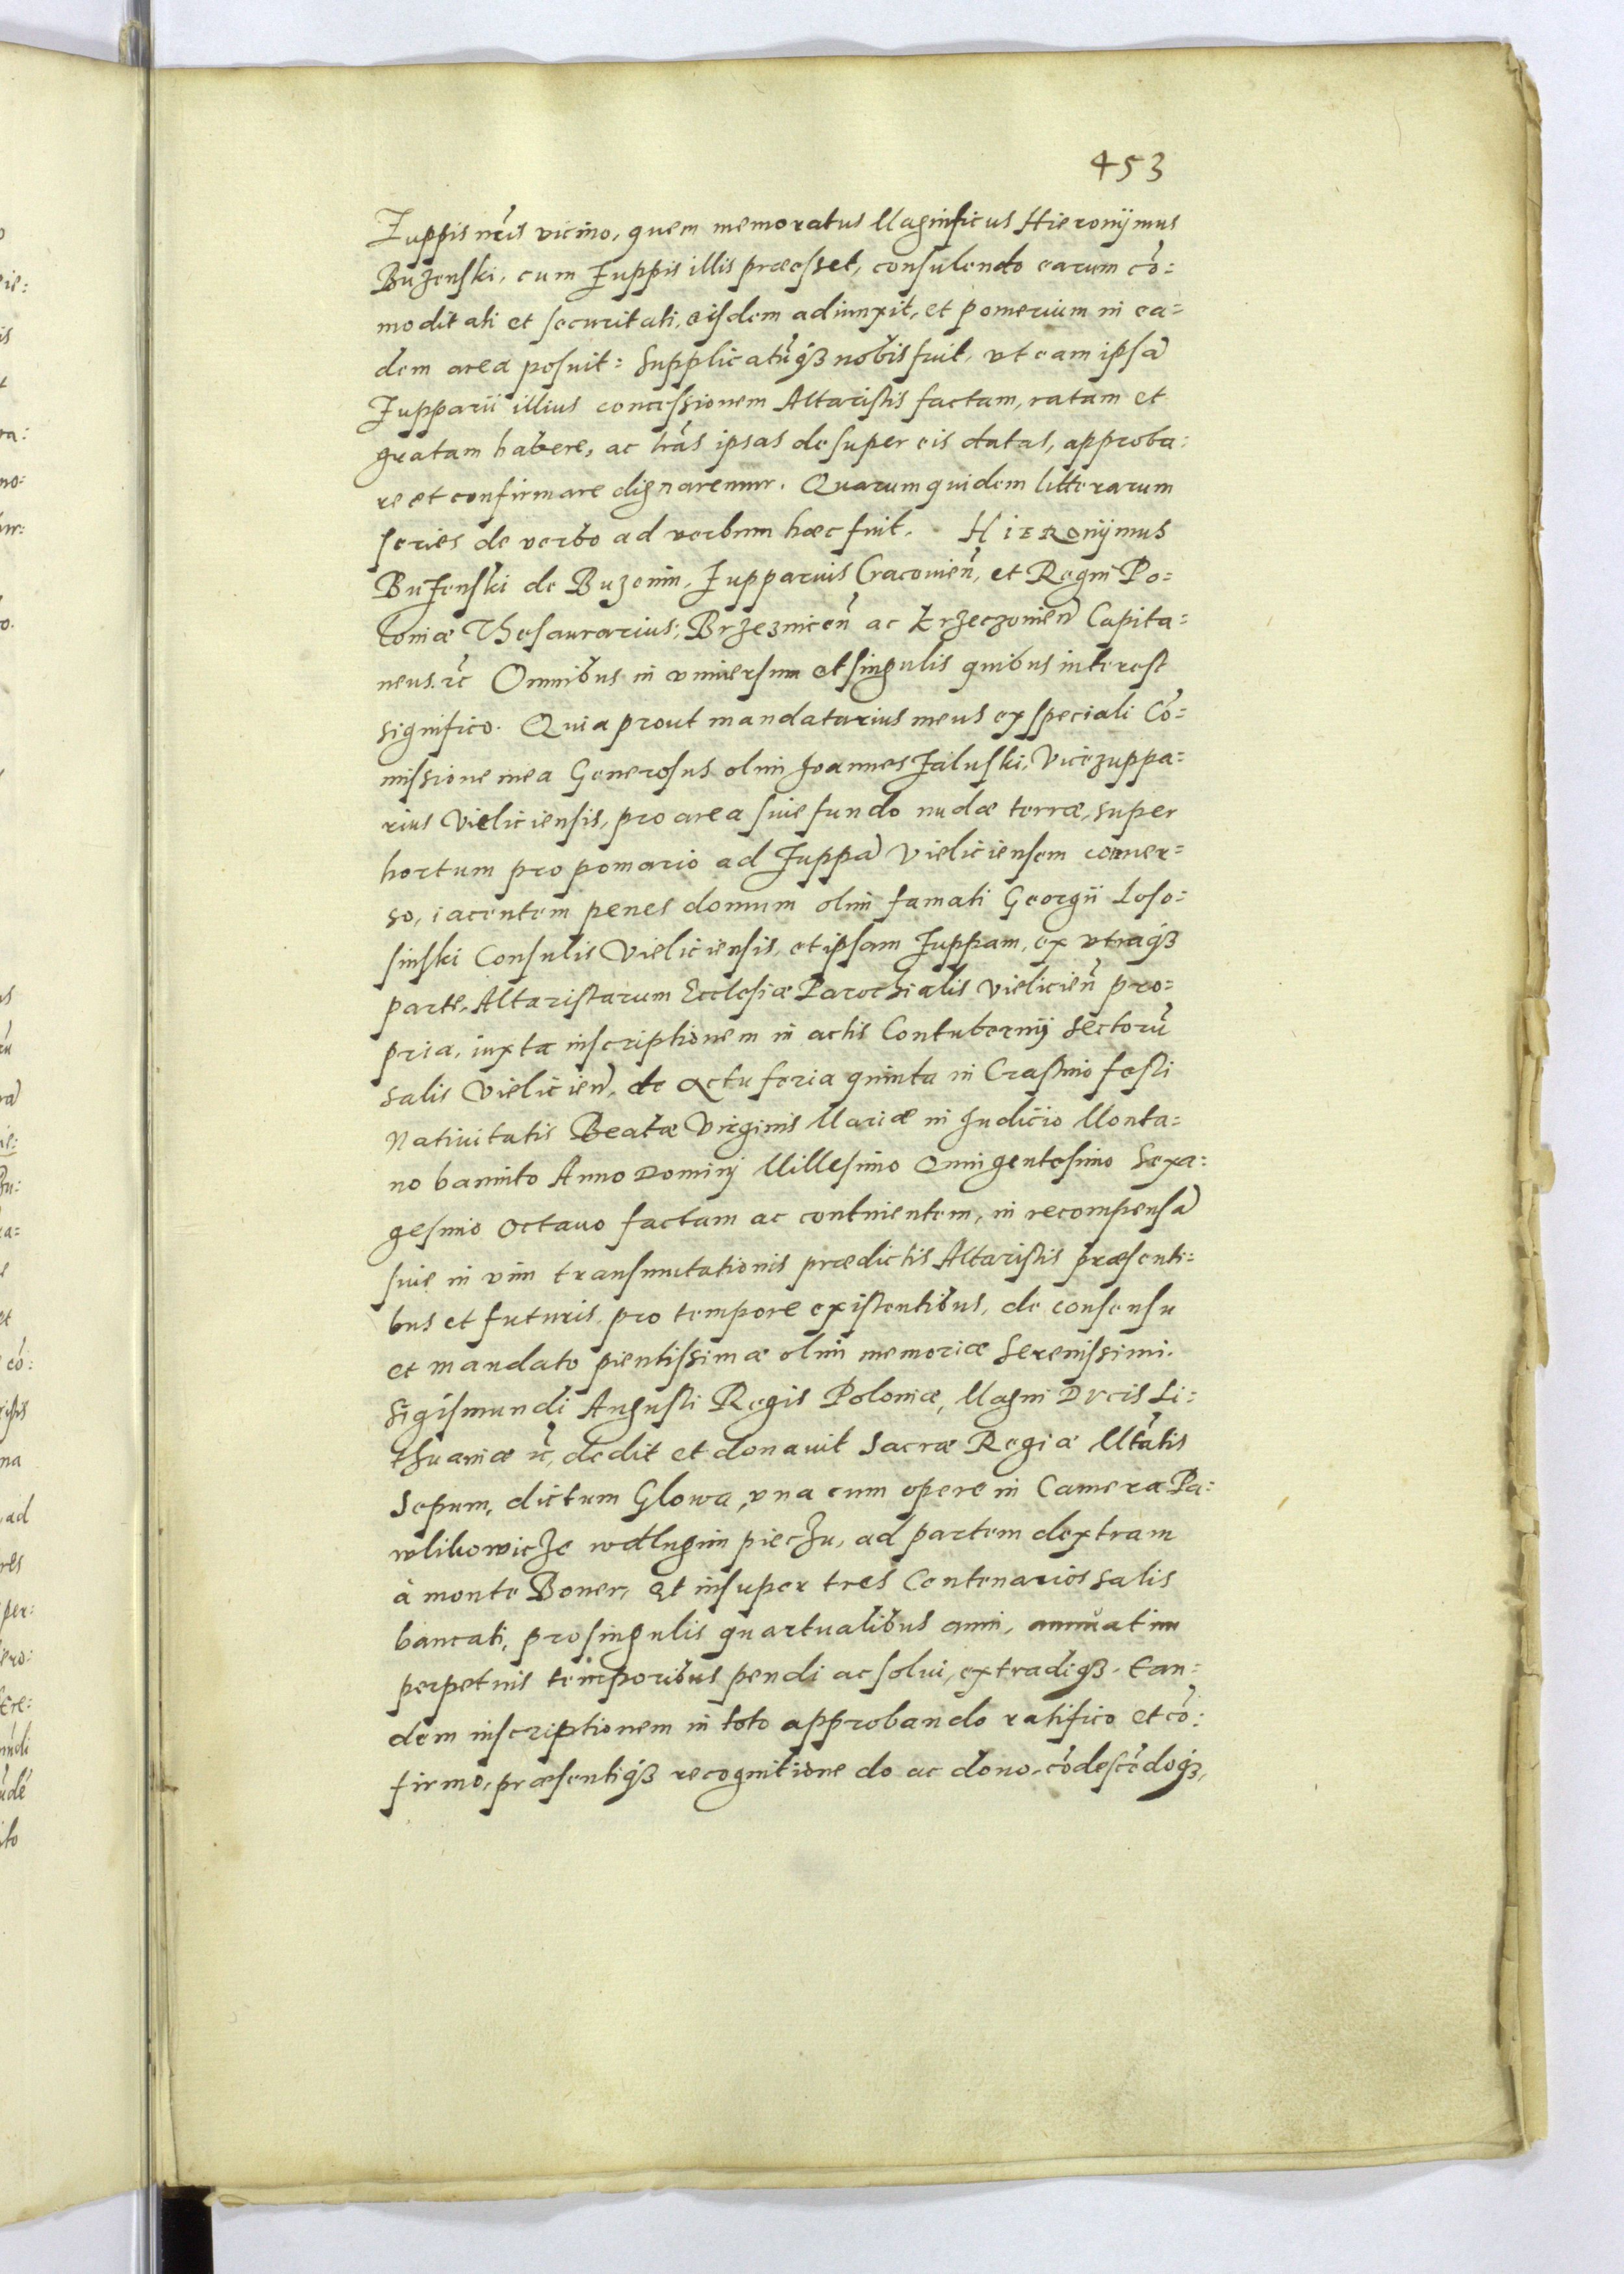 453
Zuppis nr̃is vicino, quem memoratus Magnificus Hieronijmus
Buzenski, cum Zuppis illis præesset, consulendo earum cõ=
moditati et securitati, eisdem adiunxit, et pomerium in ea=
dem area posuit: Supplicatũq3 nobis fuit, vt eam ipsã
Zupparii illius concessionem Altaristis factam, ratam et
gratam habere, ac lr̃as ipsas desuper eis datas, approba=
re et confirmare dignaremur. Quarum quidem litterarum
series de verbo ad verbum hæc fuit. HIERONijmus
Buzenski de Buzenin, Zupparius Cracovien̄, et Regni Po=
loniæ Thesaurarius, Brzeznicen̄ ac Krzeczovien̄ Capita=
neus. ꝛc̃ Omnibus in vniversum et singulis quibus interest
significo. Quia prout mandatarius meus ex speciali Cõ=
missione mea Generosus olim Joannes Zaluski, Vicezuppa=
rius Vieliciensis, pro area siue fundo nudæ terræ, super
hortum pro pomario ad Zuppã Vieliciensem conver=
so, iacentem penes domum olim famati Georgii Loso=
sinski Consulis Vieliciensis, et ipsam Zuppam, ex vtraq3
parte, Altaristarum Ecclesiæ Parochialis Vielicien̄ pro=
pria, iuxta inscriptionem in actis Contubernij Sectorũ
salis Vielicien̄, de actu feria quinta in Crastino festi
Nativitatis Beatæ Virginis Mariæ in Judicio Monta=
no bannito Anno Dominj Millesimo Quingentesimo Sexa=
gesimo octauo factam ac continentem, in recompensã
siue in vim transmutationis prædictis Altaristis præsenti=
bus et futuris, pro tempore existentibus, de consensu
et mandato pientissimæ olim memoriæ Serenissimi.
Sigismundi Augusti Regis Poloniæ, Magni Ducis Li=
thuaniæ ꝛc̃, dedit et donauit Sacræ Regiæ Mt̃atis
Sepum, dictum Glowa, vna cum opere in Camera Pa=
wlikowicze wdlugim pieczu, ad partem dextram
à monte Boner, et insuper tres Centenarios salis
bancati, pro singulis quartualibus anni, annuatim
perpetuis temporibus pendi ac solui, extradiq3. Ean=
dem inscriptionem in toto approbando ratifico et cõ=
firmo, præsentiq3 recognitione do ac dono, cõdescẽdoq3,